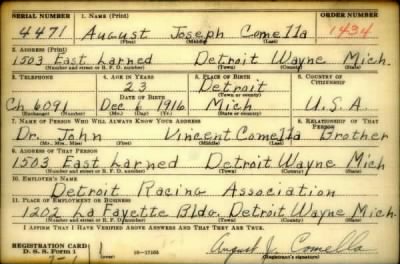 SERIAL NUMBER 1. NAME (Print) ORDER NUMBER
4471 August Joseph Comella 1434
(First) (Middle) (Last)
2. ADDRESS (Print)
1503 East Larned Detroit Wayne Mich.
(Number and street or R. F. D. number) (Town) (County) (State)
3. TELEPHONE 4. AGE IN YEARS 5. PLACE OF BIRTH 6. COUNTRY OF CITIZENSHIP
23 Detroit
DATE OF BIRTH (Town or county)
Ch 6091 Dec 6 1916 Mich U.S.A.
(Exchange) (Number) (Mo.) (Day) (Yr.) (State or country)
7. NAME OF PERSON WHO WILL ALWAYS KNOW YOUR ADDRESS 8. RELATIONSHIP OF THAT PERSON
Dr. John Vincent Comella Brother
(Mr., Mrs., Miss) (First) (Middle) (Last)
9. ADDRESS OF THAT PERSON
1503 East Larned Detroit Wayne Mich
(Number and street or R. F. D. number) (Town) (County) (State)
10. EMPLOYER'S NAME
Detroit Racing Association
11. PLACE OF EMPLOYMENT OR BUSINESS
1202 La Fayette Bldg. Detroit Wayne Mich
(Number and street or R. F. D. number) (Town) (County) (State)
I AFFIRM THAT I HAVE VERIFIED ABOVE ANSWERS AND THAT THEY ARE TRUE.
REGISTRATION CARD
D. S. S. Form 1 16—17105 August J. Comella
(Registrant's signature)